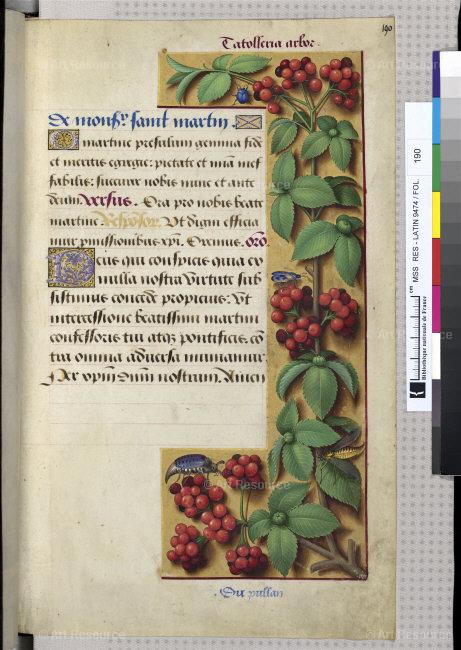 190
Tatolleria arbor
De monsr. saint martin
O martine presulum gemma fide
et meritis egregie: pietate et miā inef
fabilis: succurre nobis nunc et ante
deum. Versus. Ora pro nobis beate
martine Respōsor. Ut digni efficia
mur pmissionibus xpi. Oremus. orō.
Deus qui conspicis quia ex
nulla nostra virtute sub
sistimus: concede propicius: ut
intercessione beatissimi martini
confessoris tui atqz pontificis. cō
tra omnia adversa muniamur.
Per xpum dnum nostrum. Amen
Du pullan
190
MSS RES - LATIN 9474 / FOL.
cm
Bibliothèque nationale de France
© Art Resource
© Art Resource
© Art Resource
© Art Resource